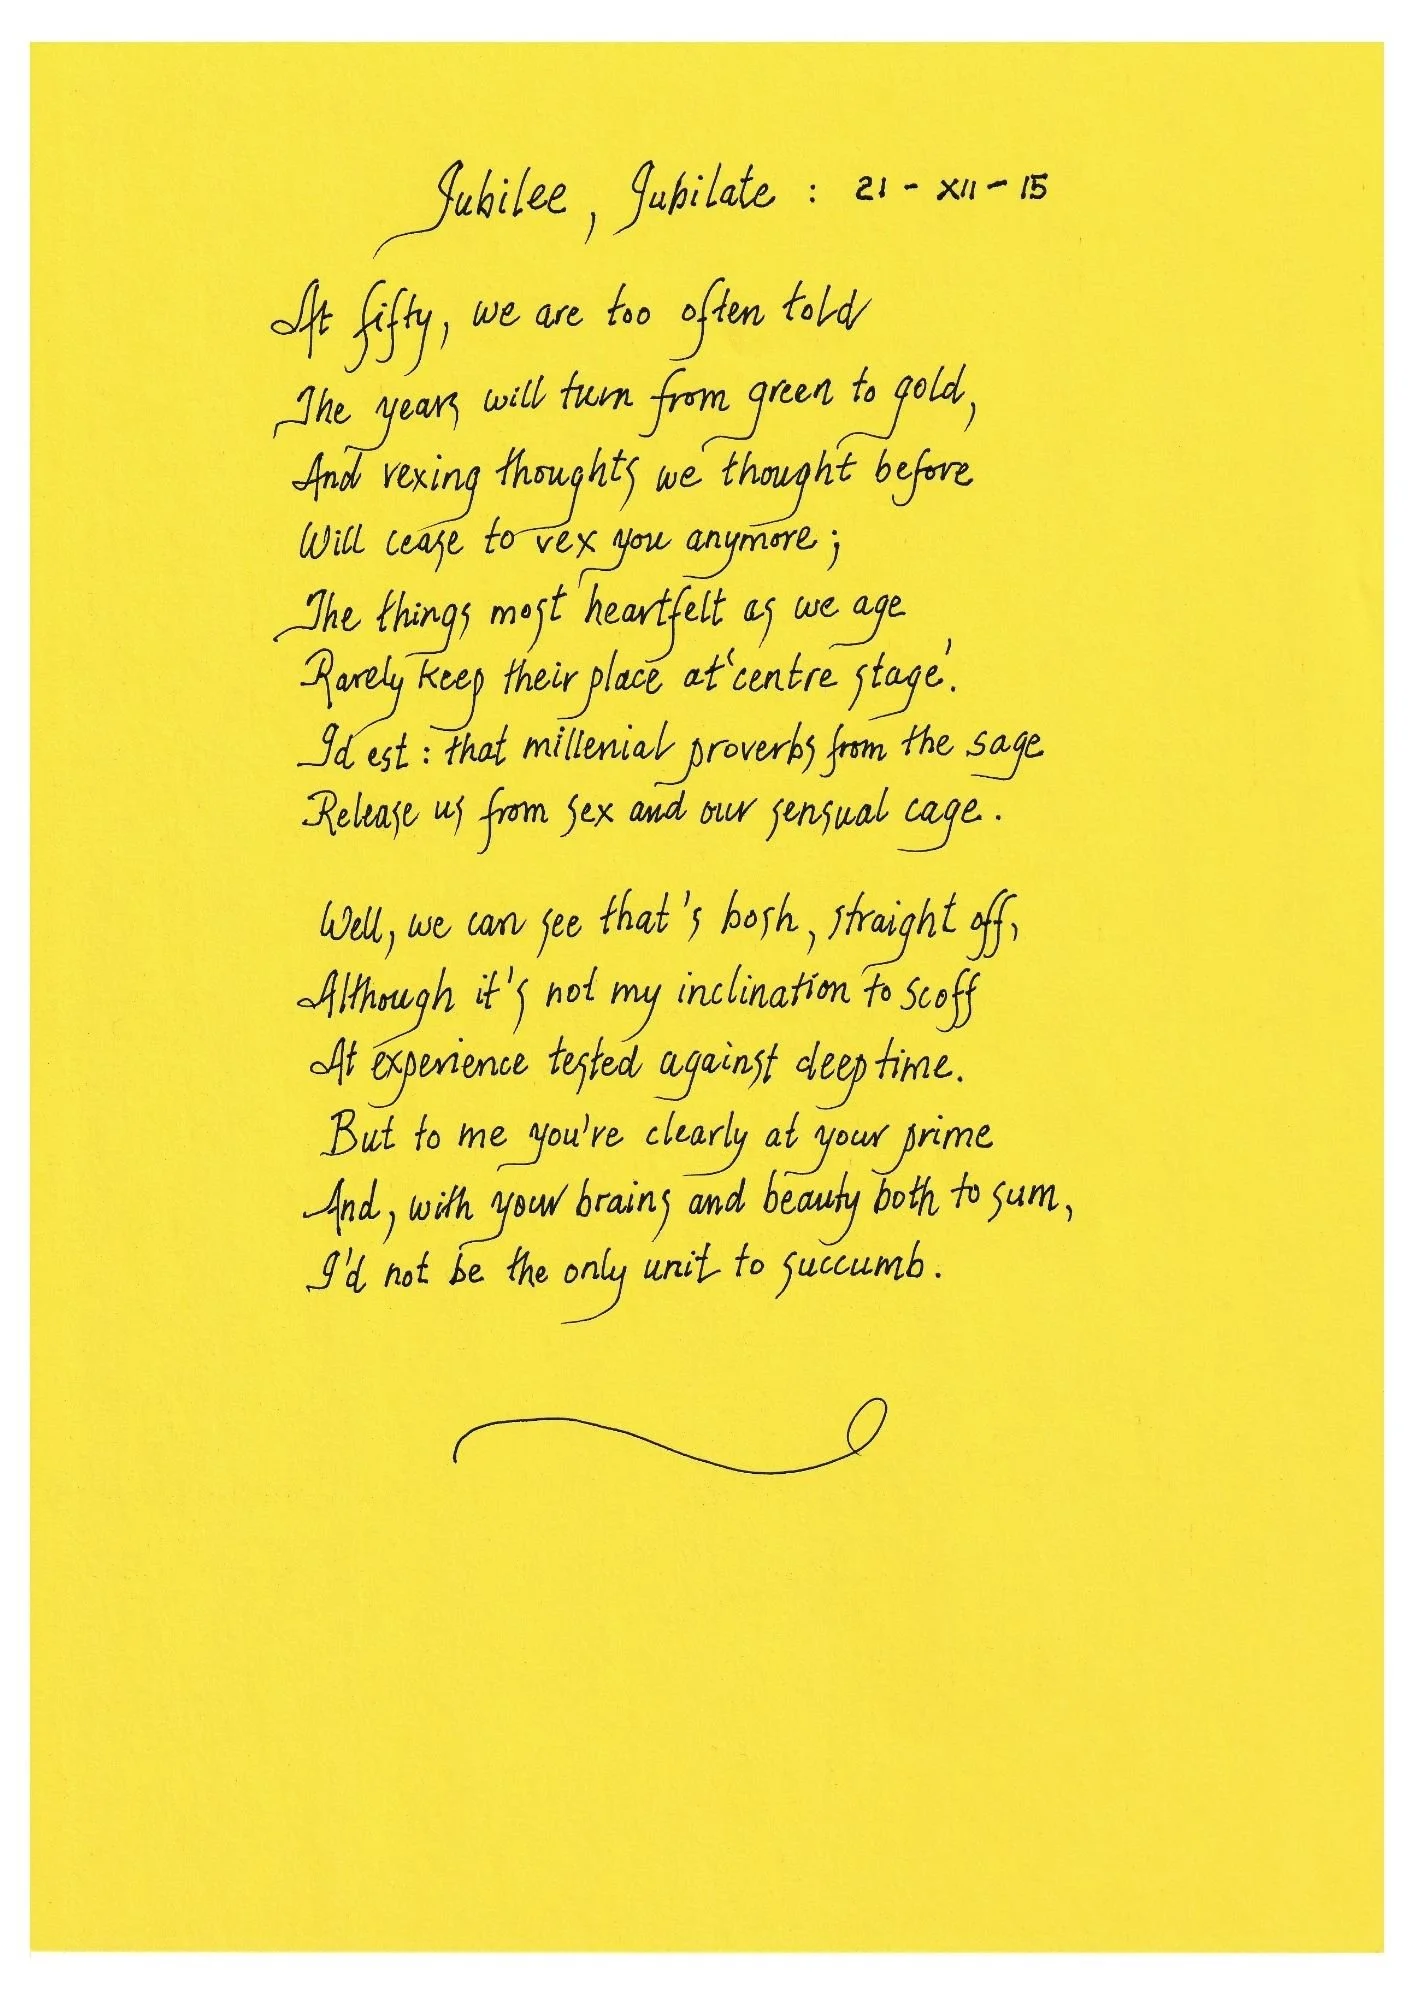 Jubilee, Jubilate : 21 - XII - 15
At fifty, we are too often told
The years will turn from green to gold,
And vexing thoughts we thought before
Will cease to vex you anymore;
The things most heartfelt as we age
Rarely keep their place at 'centre stage'.
Id est : that millenial proverbs from the sage
Release us from sex and our sensual cage.
Well, we can see that's bosh, straight off,
Although it's not my inclination to scoff
At experience tested against deep time.
But to me you're clearly at your prime
And, with your brains and beauty both to sum,
I'd not be the only unit to succumb.